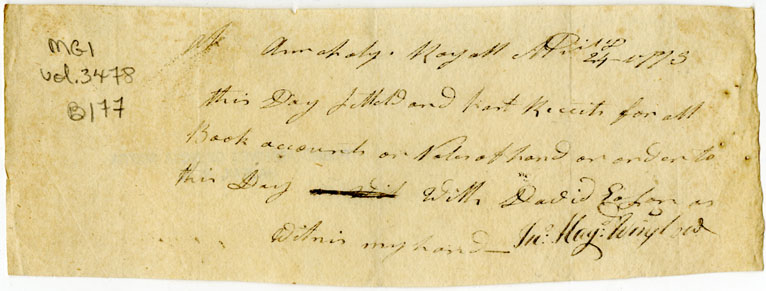 MG1
vol. 3478
B177
Annapolis Royall Apri 24 1773
this Day setteld and past Receits for all
Book accounts or Notes of hand or order to
this Day With David Eason as
Witnis my hand